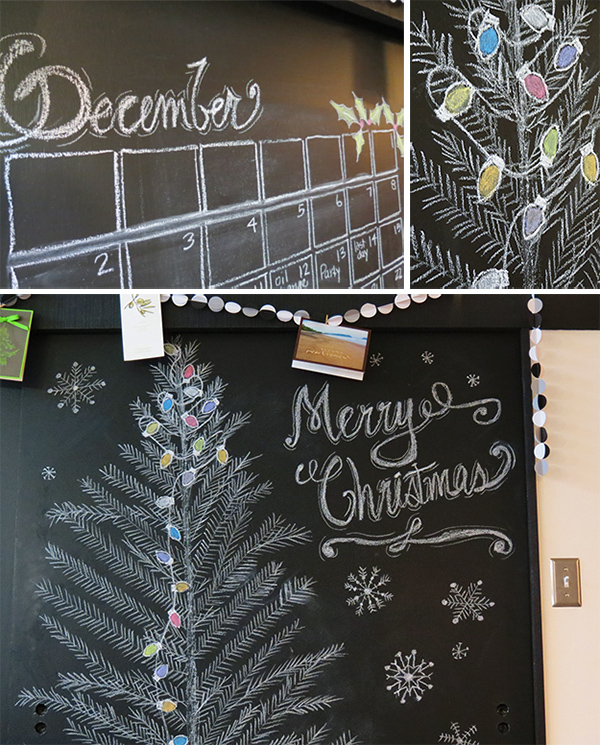 December
2 3 4 5 6 7 8
Oil 12 Party 13 day 14
Merry
Christmas